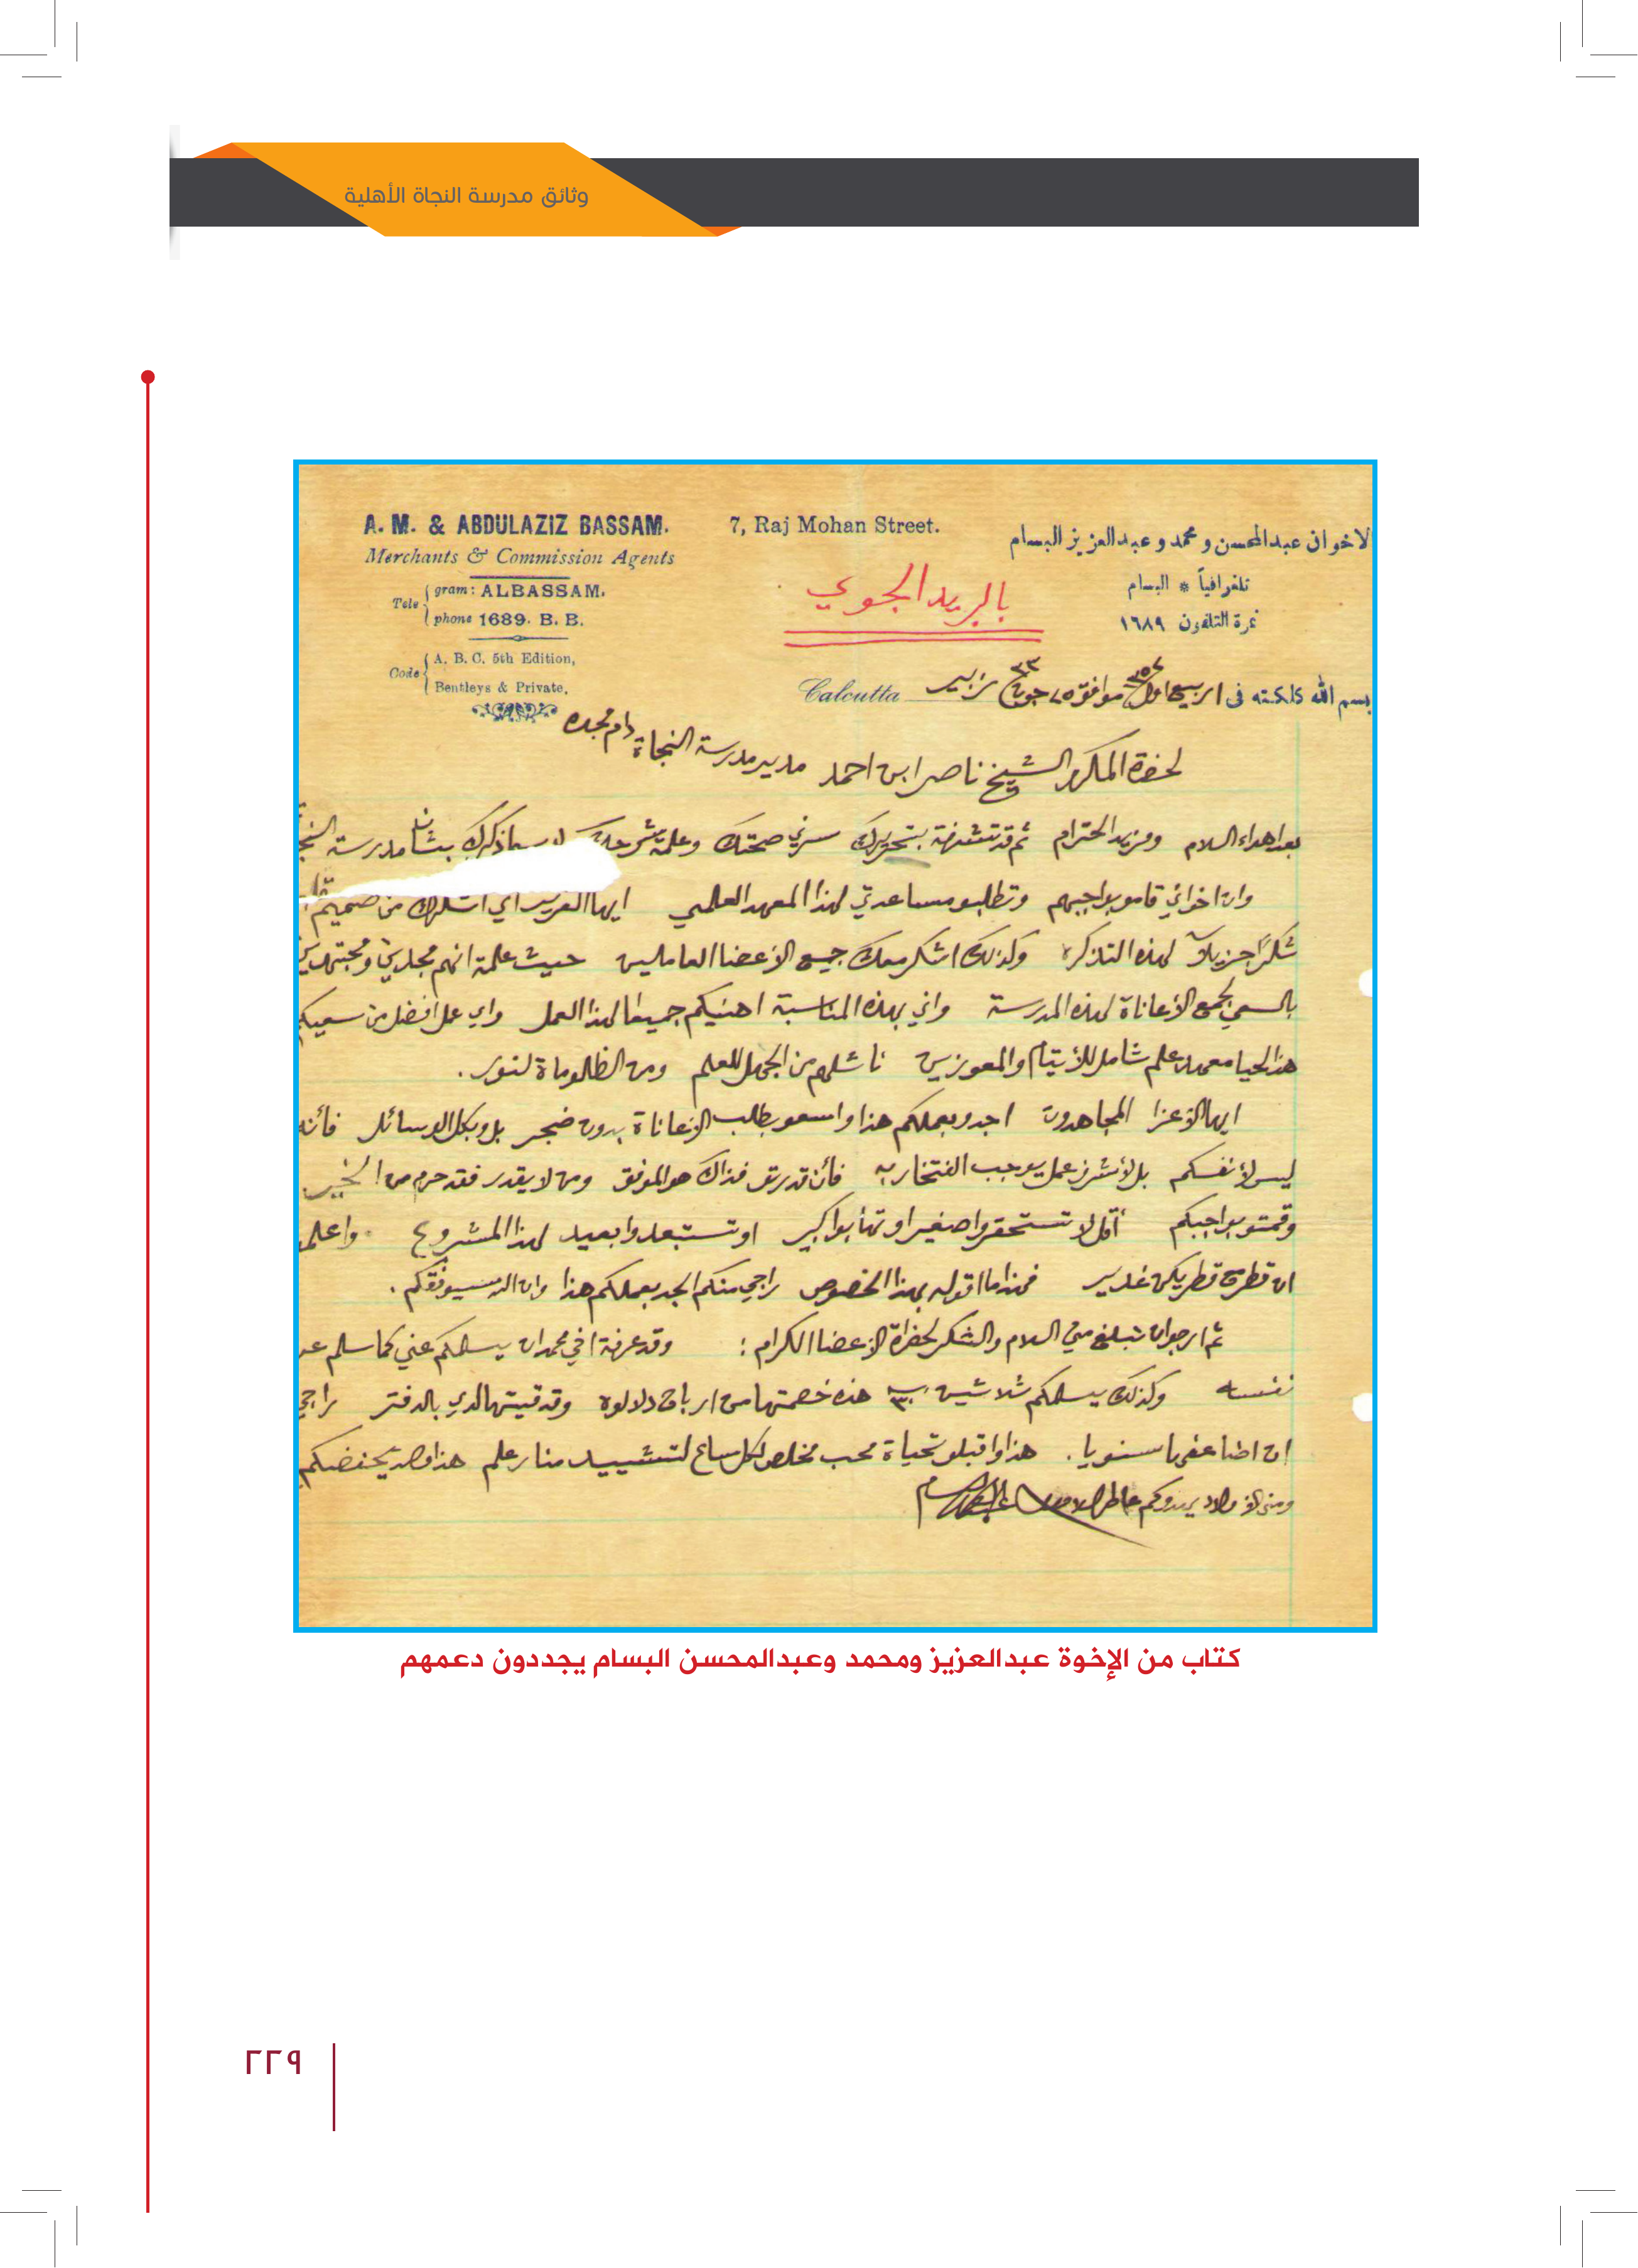 وثائق مدرسة النجاة الأهلية
A. M. & ABDULAZIZ BASSAM.
Merchants & Commission Agents
Tele gram: ALBASSAM.
phone 1689. B. B.
Code A. B. C. 5th Edition,
Bentleys & Private.
7, Raj Mohan Street.
الاخوان عبدالمحسن ومحمد وعبدالعزيز البسام
تلغرافياً * البسام
نمرة التلفون ١٦٨٩
بالبريد الجوي
Calcutta
بسم الله كلكته فى ١ ربيع اول موافق ٢٥ جون ٣٣ زبير
لحضرة المكرم الشيخ ناصر ابن احمد مدير مدرسة النجاة دام مجده
بعد اهداء السلام ومزيد الحترام ثم قد تشرفة بتحريرك سرني صحتك وعلمة بشرحك لاسيما ذكرك بشأن مدرسة
وان اخواني قامو بواجبهم وتطلبو مساعدتي لهذا المعهد العلمي ايها العزيز اني اشكرك من صميم
شكرًا جزيلاً لهذه التذكره وكذلك اشكر معك جميع الأعضا العاملين حيث علمة انهم مجدين ومجتهدين
بالسعي لجمع الأعاناة لهذه المدرسة واني بهذه المناسبة اهنيكم جميعا لهذا العمل واي عمل افضل من سعيكم
هذا لحيا معهد علم شامل للأيتام والمعوزين ناشلهم من الجهل للعلم ومن الظلوماة لنور.
ايها الأعزا المجاهدون اجدو بعملكم هذا واسعو بطلب الأعاناة بدون ضجر بل وبكل الوسائل فأنه
ليس لأنفسكم بل لأشرف عمل يوجب الفتخار به فأن قدرتو فذاك هو الموفق ومن لا يقدر فقد حرم من الخير
وقمتو بواجبكم أقل لا تستحقروا صغير او تهابوا كبير او تستبعدوا بعيد لهذا المشروع واعلمو
ان قطرة قطر يكن غدير فهذا ما اقوله بهذا الخصوص راجي منكم الجد بعملكم هذا وان الله سيوفقكم.
ثم ارجو ان تبلغ مني السلام والشكر لحضراة الأعضا الكرام: وقد عرفة اخي محمد ان يسلمكم عني كما سلم عن
نفسه وكذلك يسلمكم ثلاثين ربيه ٣٠ هذه خصمتها من ارباح دلالوه وقد قيتها لدي بالدفتر راجي
ان اضاعفها سنويا. هذا واقبلو تحياة محب مخلص لكل ساع لتشييد منار علم هذا والله يحفضكم
ومني
كتاب من الإخوة عبدالعزيز ومحمد وعبدالمحسن البسام يجددون دعمهم
٢٢٩